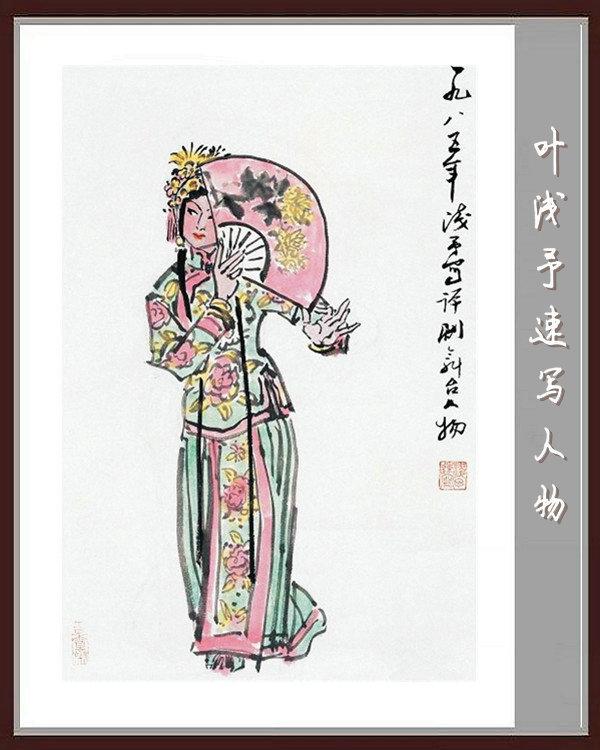 叶浅予速写人物
一九八五年浅予写评剧舞台人物